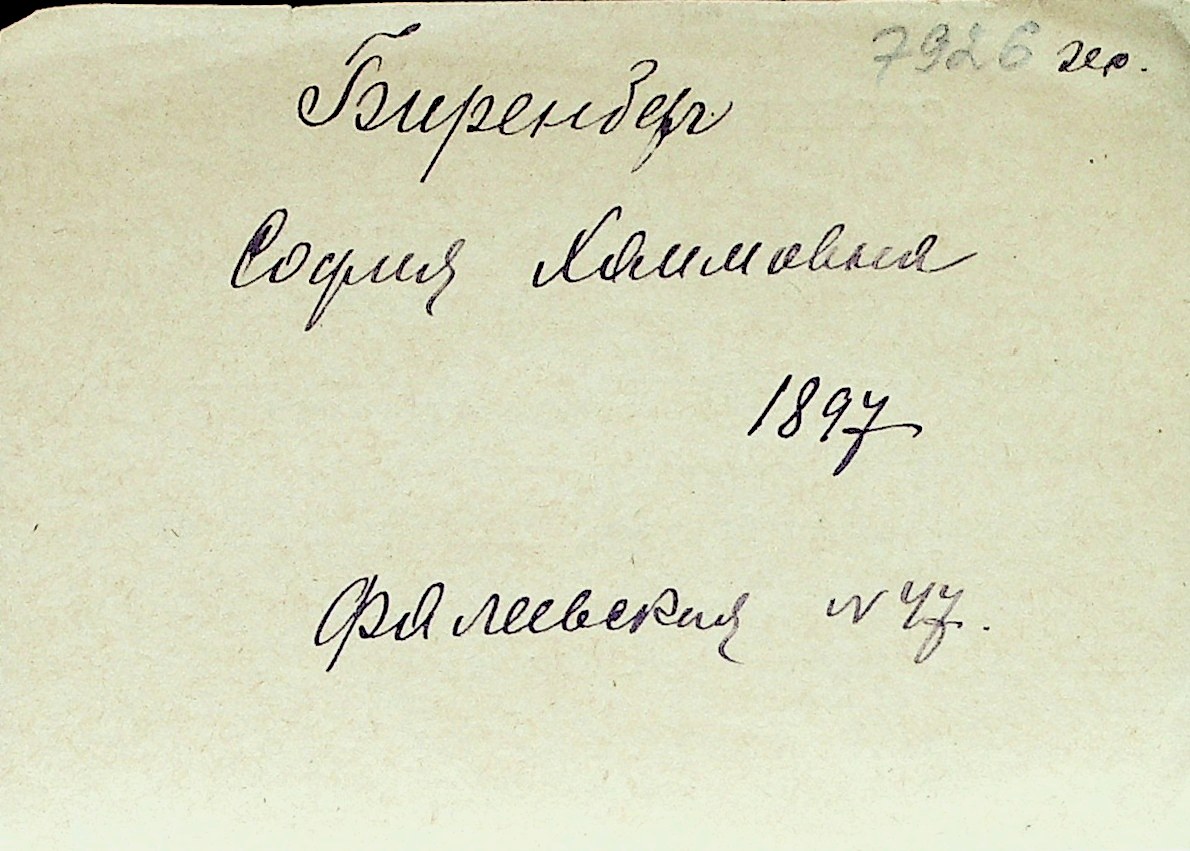 7926 гер.
Биренберг
София Хаимовна
1897
Фалеевская № 47.